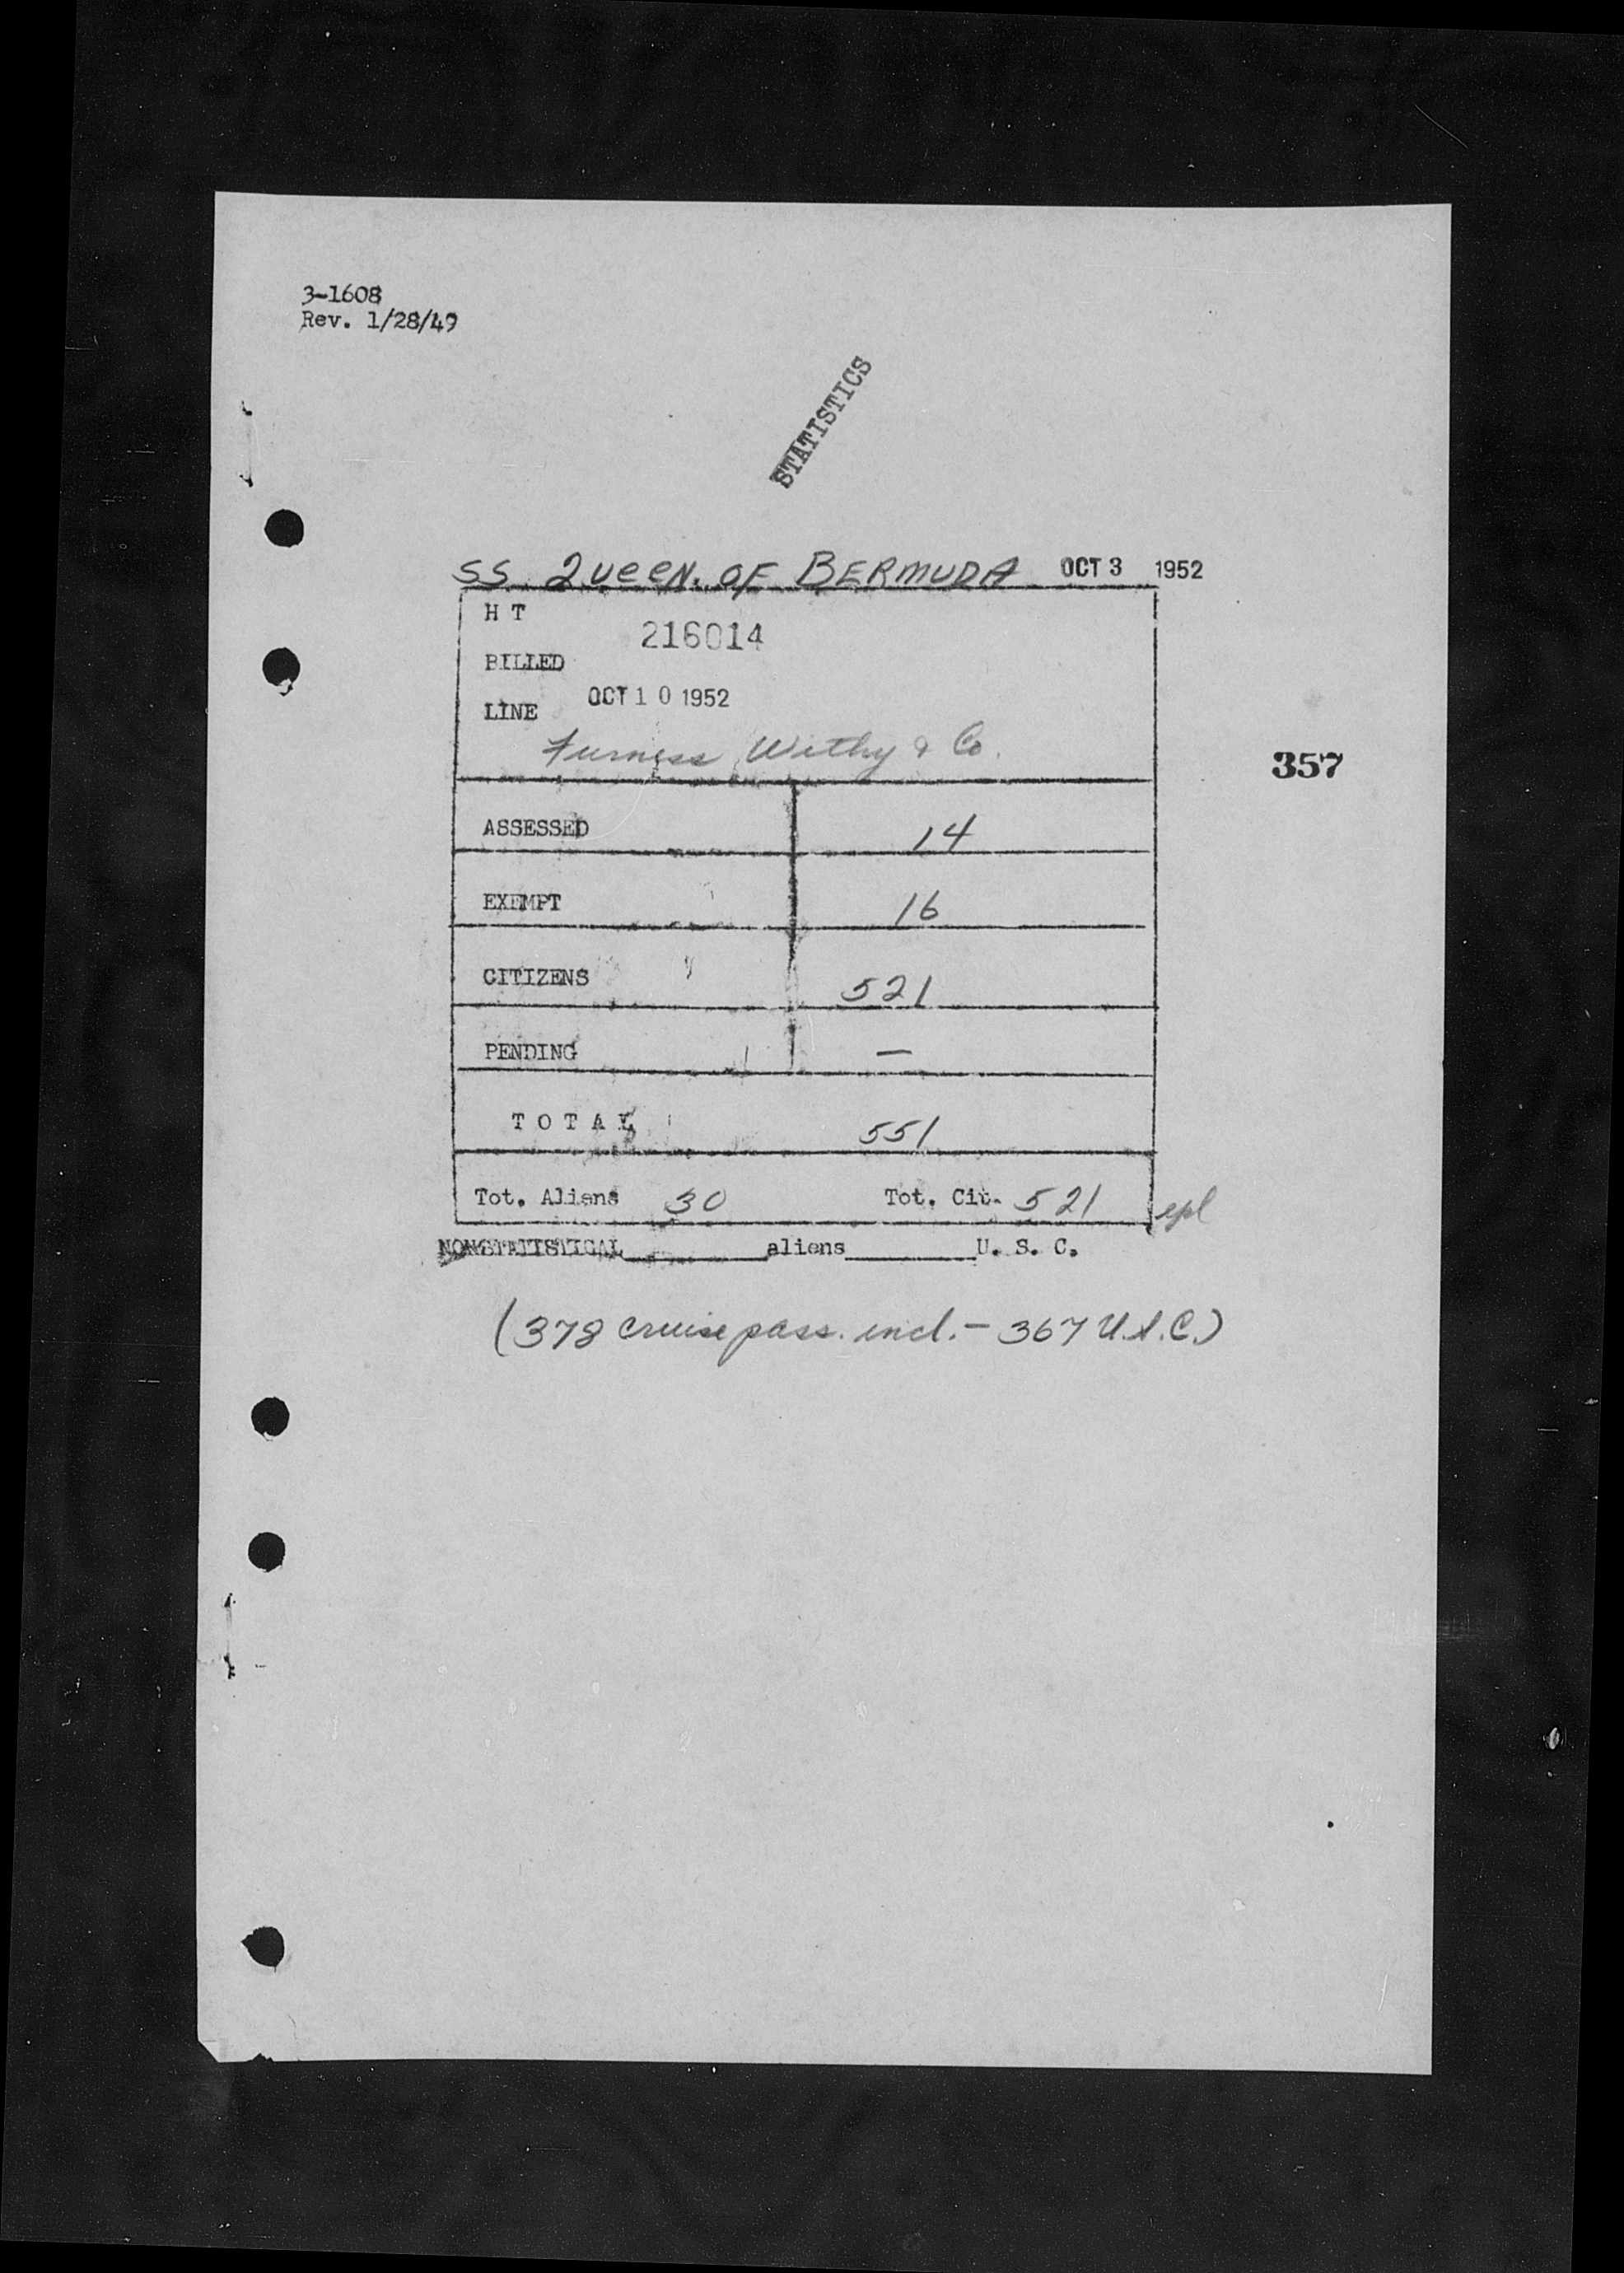 3-1608
Rev. 1/28/49
STATISTICS
SS. QUEEN. OF BERMUDA OCT 3 1952
H T
216014
BILLED
OCT 10 1952
LINE
Furness Withy & Co.
357
ASSESSED 14
EXEMPT 16
CITIZENS 521
PENDING —
TOTAL 551
Tot. Aliens 30 Tot. Cit. 521 epl
NONSTATISTICAL aliens U. S. C.
(378 cruise pass. incl. – 367 U.S.C.)